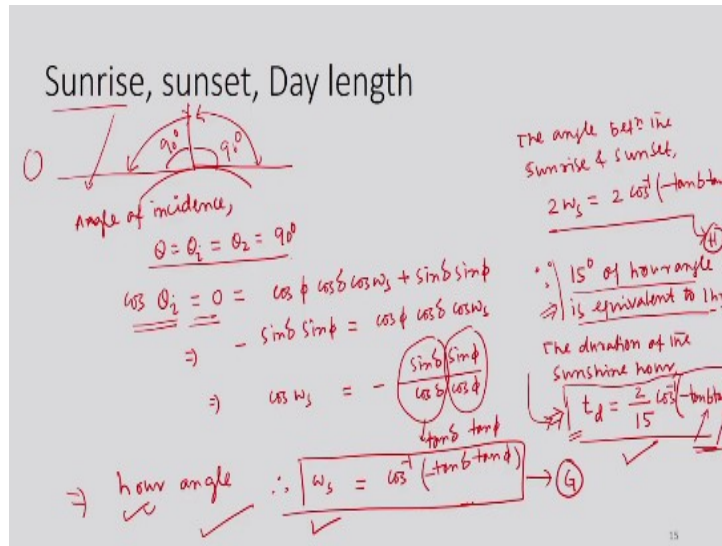 Sunrise, sunset, Day length
90° 90°
Angle of incidence,
θ = θi = θz = 90°
cos θi = 0 = cos φ cos δ cos ωs + sin δ sin φ
⇒ - sin δ sin φ = cos φ cos δ cos ωs
⇒ cos ωs = - sin δ sin φ / cos δ cos φ
tan δ tan φ
⇒ hour angle ∴ ωs = cos⁻¹ (-tan δ tan φ) → G
The angle betn the
sunrise & sunset,
2 ωs = 2 cos⁻¹ (-tan δ tan
H
∵ 15° of hour angle
⇒ is equivalent to 1h
The duration of the
sunshine hour,
⇒ td = 2/15 cos⁻¹ (-tan δ ta
15